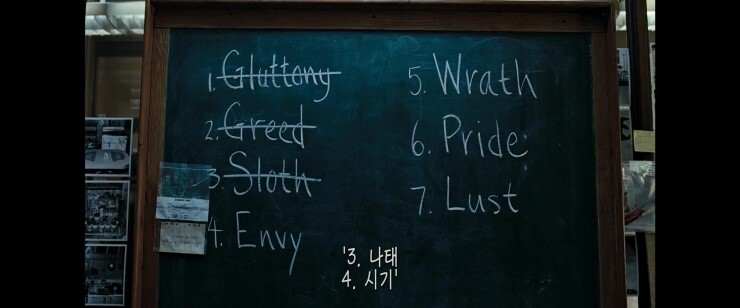 1. Gluttony
2. Greed
3. Sloth
4. Envy
5. Wrath
6. Pride
7. Lust
'3. 나태
4. 시기'